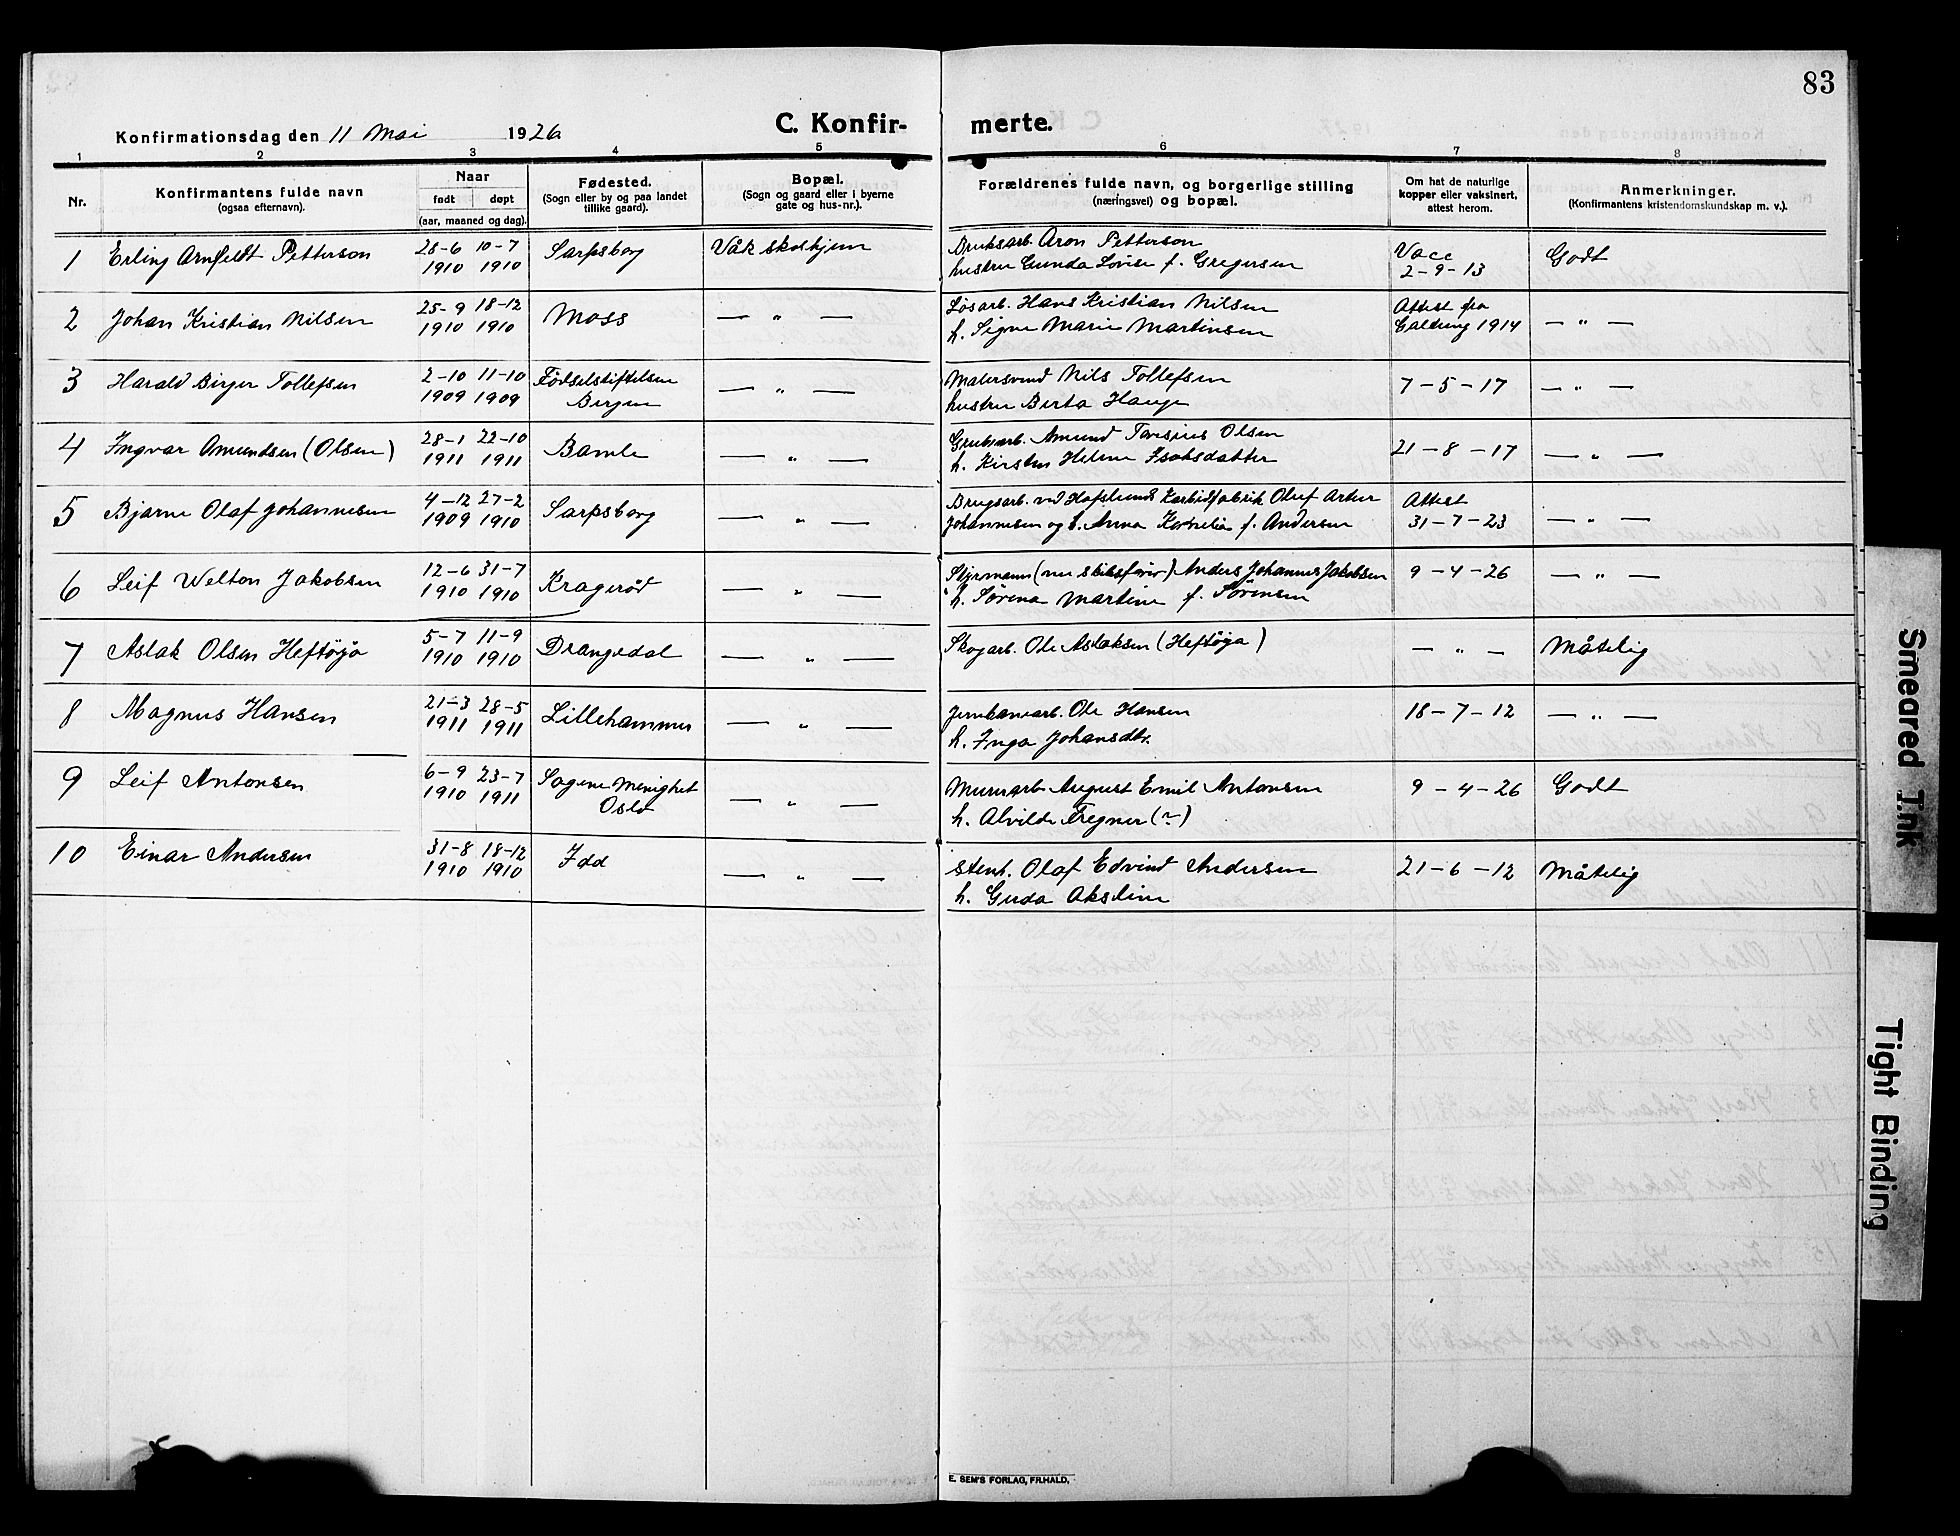 83
Konfirmationsdag den 11 Mai 1926
C. Konfir- merte.
1 2 3 4 5 6 7 8
Nr.
Konfirmantens fulde navn
(ogsaa efternavn).
Naar
født døpt
(aar, maaned og dag).
Fødested.
(Sogn eller by og paa landet
tillike gaard).
Bopæl.
(Sogn og gaard eller i byerne
gate og hus-nr.).
Forældrenes fulde navn, og borgerlige stilling
(næringsvei) og bopæl.
Om hat de naturlige
kopper eller vaksinert,
attest herom.
Anmerkninger.
(Konfirmantens kristendomskundskap m. v.).
1 Erling Arnfeldt Petterson 28-6 10-7 Sarpsborg Våk skolehjem Bruksarb. Aron Petterson Vacc Godt
1910 1910 hustru Gunda Lovise f. Gregersen 2-9-13
2 Johan Kristian Nilsen 25-9 18-12 Moss — „ — Løsarb. Hans Kristian Nilsen Attest fra — „ —
1910 1910 h. Signe Marie Martinsen 1914
3 Harald Birger Tollefsen 2-10 11-10 Fødselstiftelsen — „ — Malersvend Nils Tollefsen 7-5-17 — „ —
1909 1909 Bergen hustru Berta Hauge
4 Ingvar Amundsen (Olsen) 28-1 22-10 Bamle — „ — Grubearb. Amund Olsen 21-8-17 — „ —
1911 1911 h. Kirsten Helene Isaksdatter
5 Bjarne Olaf Johannesen 4-12 27-2 Sarpsborg — „ — Brugsarb. ved Hafslunds Karbidfabrik Oluf Artur Attest — „ —
1909 1910 Johannesen og h. Anna Kornelia f. Andersen 31-7-23
6 Leif Welton Jakobsen 12-6 31-7 Kragerød — „ — Styrmann (nu skibsfører) Anders Johannes Jakobsen 9-4-26 — „ —
1910 1910 h. Sørena Martine f. Sørensen
7 Aslak Olsen Heftøja 5-7 11-9 Drangedal — „ — Skogarb. Ole Aslaksen (Heftøja) — „ — Måtelig
1910 1910
8 Magnus Hansen 21-3 28-5 Lillehammer — „ — Jernbanearb. Ole Hansen 18-7-12 — „ —
1911 1911 h. Inga Johansdtr.
9 Leif Antonsen 6-9 23-7 Sagene Menighet — „ — Murerarb. August Emil Antonsen 9-4-26 Godt
1910 1911 Oslo h. Alvilde Tregner (~)
10 Einar Andersen 31-8 18-12 Idd — „ — Stenh. Olaf Edvind Andersen 21-6-12 Måtelig
1910 1910 h. Guda Akseline
E. SEM'S FORLAG, FR.HALD.
Smeared Ink
Tight Binding